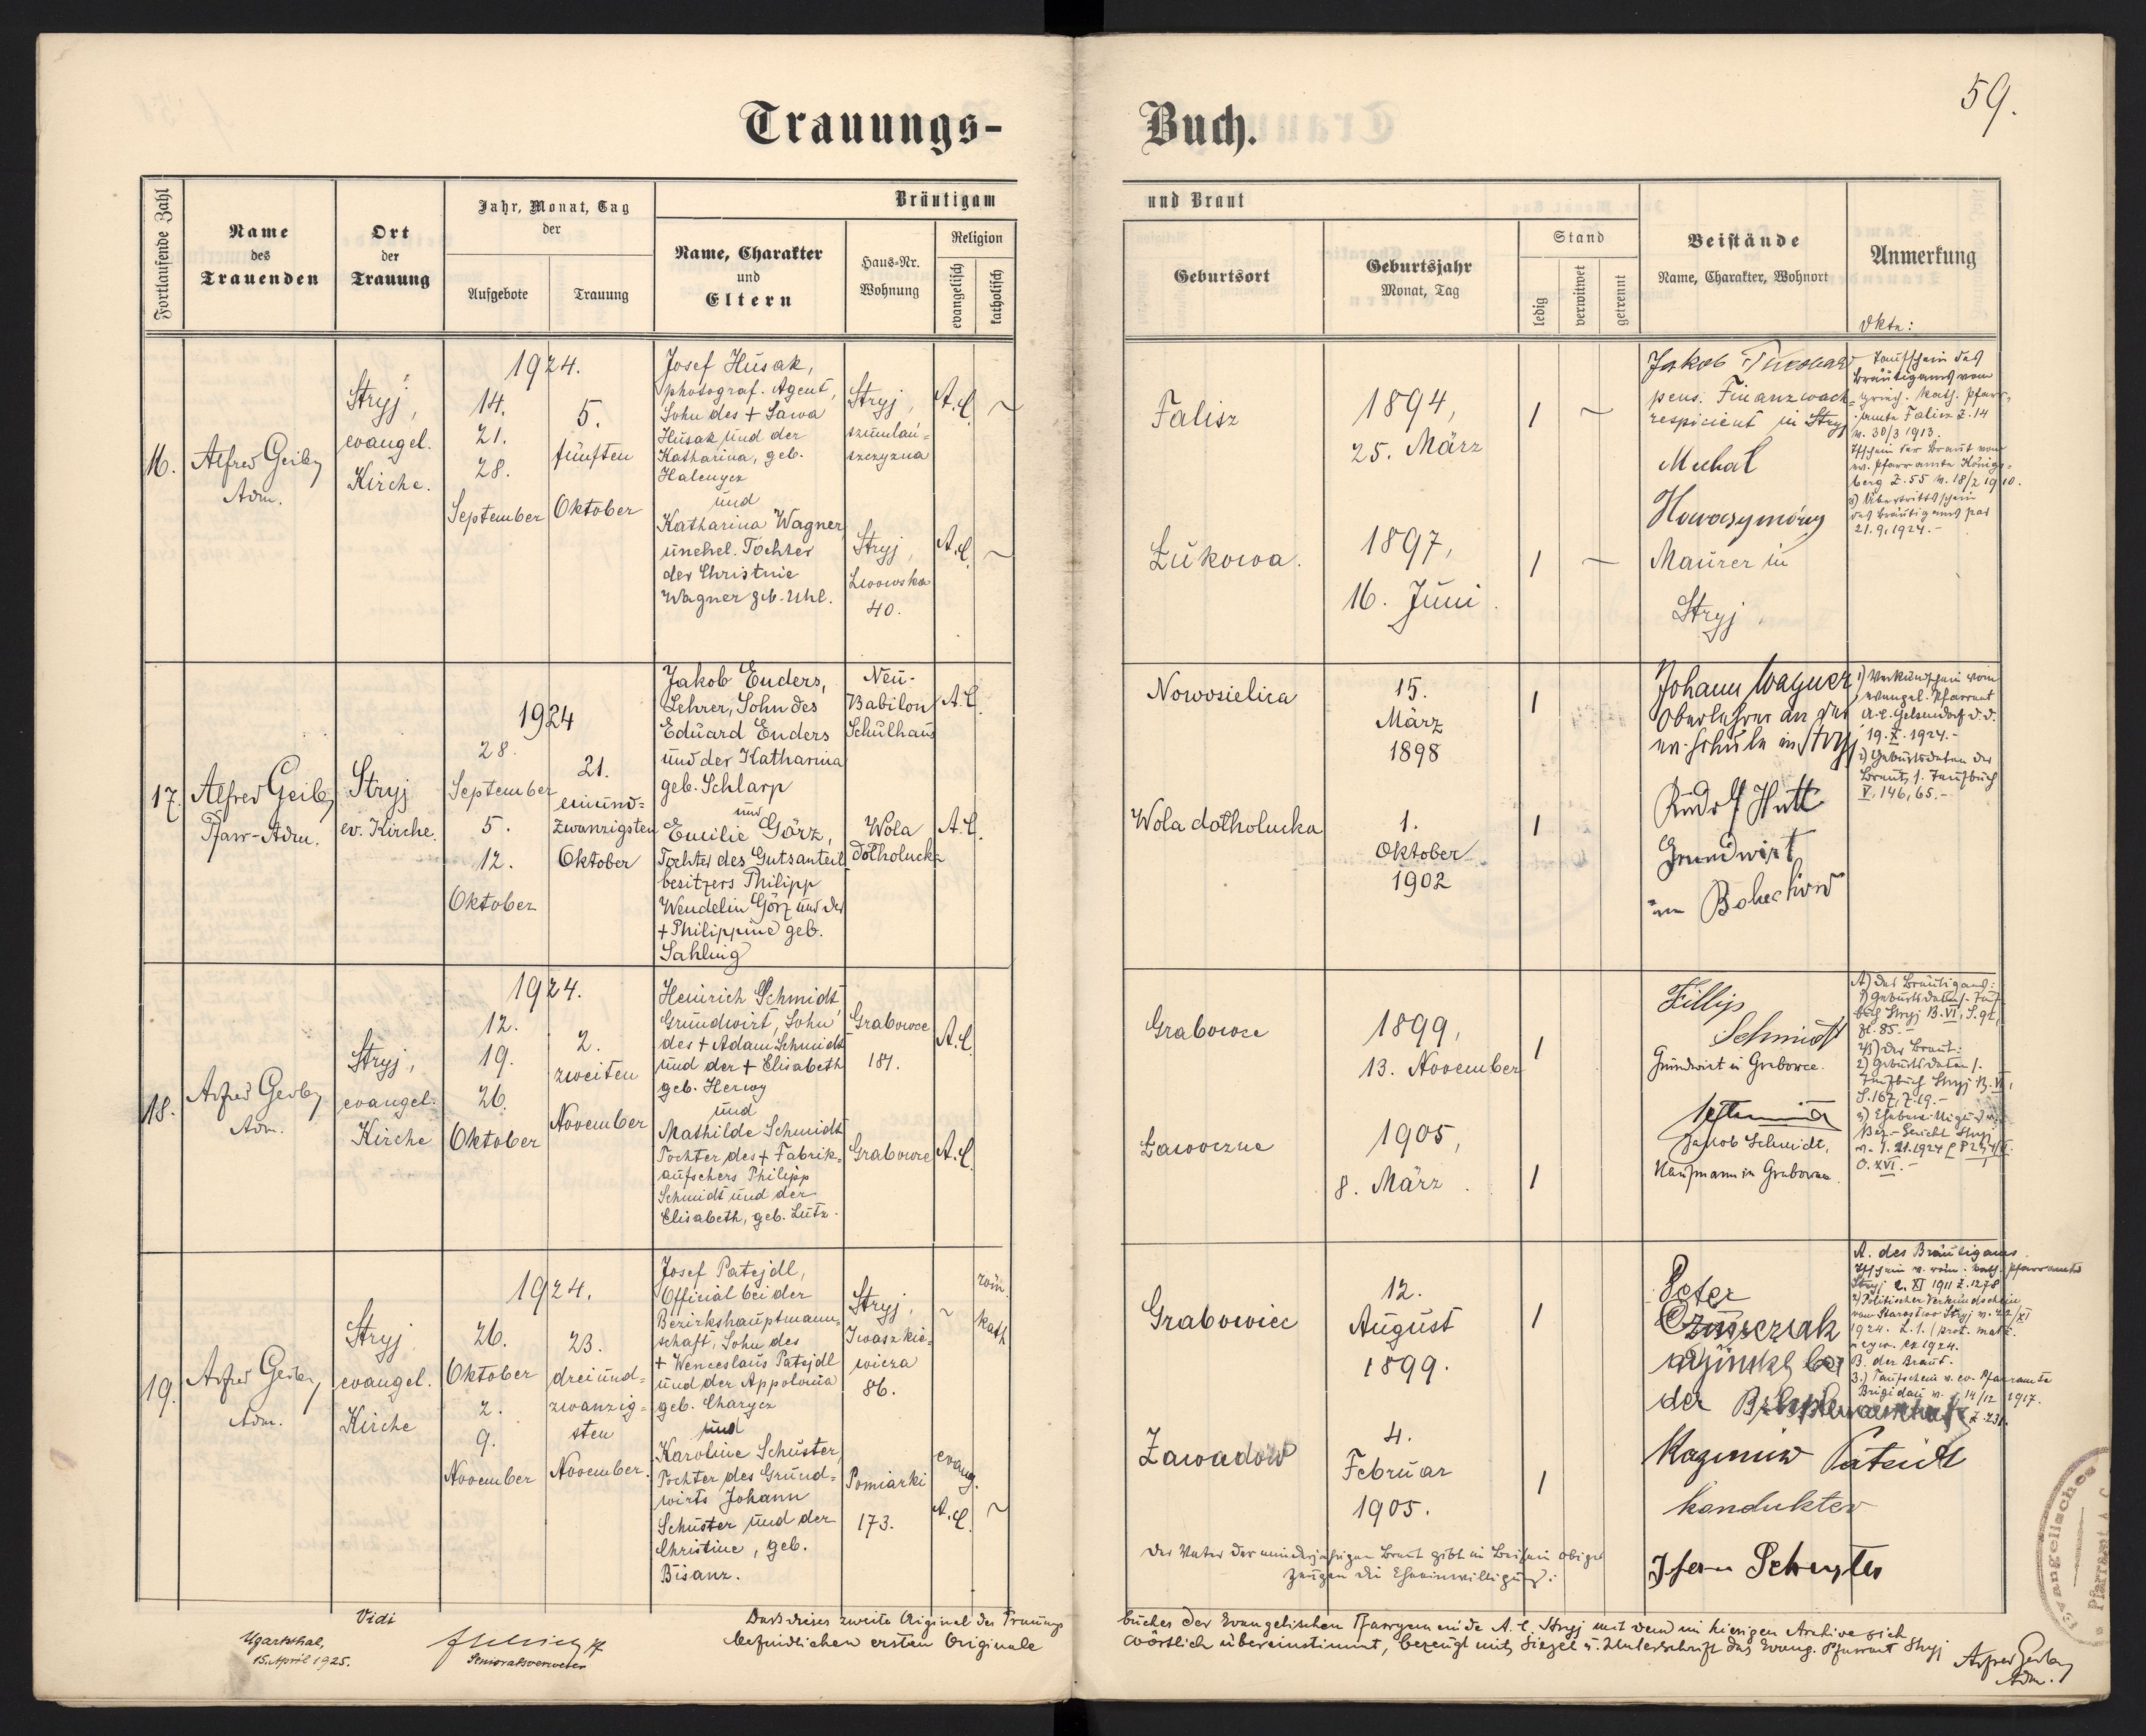 59.
Trauungs-Buch.
Fortlaufende Zahl
Name
des
Trauenden
Ort
der
Trauung
Jahr, Monat, Tag
der
Aufgebote
Trauung
Bräutigam
und Braut
Name, Charakter
und
Eltern
Haus-Nr.
Wohnung
Religion
evangelisch
katholisch
Geburtsort
Geburtsjahr
Monat, Tag
Stand
ledig
verwitwet
getrennt
Beistände
Name, Charakter, Wohnort
Anmerkung
16.
Alfred
Adm.
Stryj,
evangel.
Kirche.
1924.
14.
21.
28.
September
5.
fünften
Oktober
Josef Husak,
photograf. Agent,
Sohn des + Sawa
Husak und der
Katharina, geb.
Halenycz
und
Katharina Wagner,
unehel. Tochter
der Christine
Wagner geb. Uhl.
Stryj,
A.C.
Stryj,
Lwowska
40.
A.C.
Falisz
1894,
25. März
Łukowa.
1897,
16. Juni.
Jakob
pens. Finanzwach-
respicient in Stryj
Maurer in
Stryj
Taufschein des
Bräutigams vom
griech. kath. Pfarr-
amte Falisz Z. 14
v. 30/3 1913.
des Bräutigams
21.9.1924.-
17.
Alfred
Pfarr-Adm.
Stryj
ev. Kirche.
1924
28.
September
5.
12.
Oktober
21.
einund-
zwanzigsten
Oktober
Jakob Enders,
Lehrer, Sohn des
Eduard Enders
und der Katharina
geb. Schlarp
und
Emilie Görz,
Tochter des Gutsanteil
besitzers Philipp
Wendelin Görz und der
+ Philippine geb.
Sahling
Neu-
Babilon
Schulhaus
A.C.
Wola
dołholucka
A.C.
Nowosielica
15.
März
1898
Wola dołholucka
1.
Oktober
1902
Johann Wagner,
Oberlehrer an der
ev. Schule in Stryj
Rudolf Hutt
Grundwirt
in Bolechów
1) Verkündschein vom
evangel. Pfarramt
A.C. Gelsendorf d.d.
19. X. 1924.-
2) Geburtsdaten der
Braut, 1. Taufbuch
V, 146, 65.-
18.
Alfred
Adm.
Stryj,
evangel.
Kirche
1924.
12.
19.
26.
Oktober
2.
zweiten
November
Heinrich Schmidt
Grundwirt, Sohn
des + Adam Schmidt
und der + Elisabeth
geb. Herwy
und
Mathilde Schmidt
Tochter des + Fabrik-
aufsehers Philipp
Schmidt und der
Elisabeth, geb. Lutz.
Grabowce
181.
A.C.
Grabowce
A.C.
Grabowce
1899,
13. November
Ławoczne
1905,
8. März.
Fillip
Schmidt
Grundwirt in Grabowce.
Jakob Schmidt,
Kaufmann in Grabowce.
A) des Bräutigams:
1) Geburtsdaten
B) der Braut:
2) Geburtsdaten
19.
Alfred
Adm.
Stryj
evangel.
Kirche
1924.
26.
Oktober
2.
9.
November
23.
dreiund-
zwanzig-
sten
November.
Josef Patejdl,
Official bei der
Bezirkshauptmann-
schaft, Sohn des
+ Wenceslaus Patejdl
und der Appolonia
geb. Charycz
und
Karoline Schuster,
Tochter des Grund-
wirts Johann
Schuster und der
Christine, geb.
Bisanz.
Stryj,
Iwaszkie-
wicza
86.
röm.
kath
Pomiarki
173.
evang.
A.C.
Grabowiec
12.
August
1899.
Zawadów
4.
Februar
1905.
Peter
der
Kazimir
Kondukter
A. des Bräutigams.
2) Politischer Verkündschein
vom Starostwo Stryj
B. der Braut.
3.) Taufschein v. ev. Pfarramte
Brigidau v. 14/12 1917.
Der Vater der minderjährigen Braut gibt im Beisein obiger
Zeugen die Eheeinwilligung:
Vidi
Ugartsthal,
15. April 1925.
Senioratsverweser
Dass dieses zweite Original des Trauungs
buches der Evangelischen Pfarrgemeinde A.C. Stryj mit dem im hiesigen Archive sich
befindlichen ersten Originale
wörtlich übereinstimmt, bezeugt mit Siegel u. Unterschrift das Evang. Pfarramt Stryj
Alfred
Adm.
Evangelisches
Pfarramt A.C.